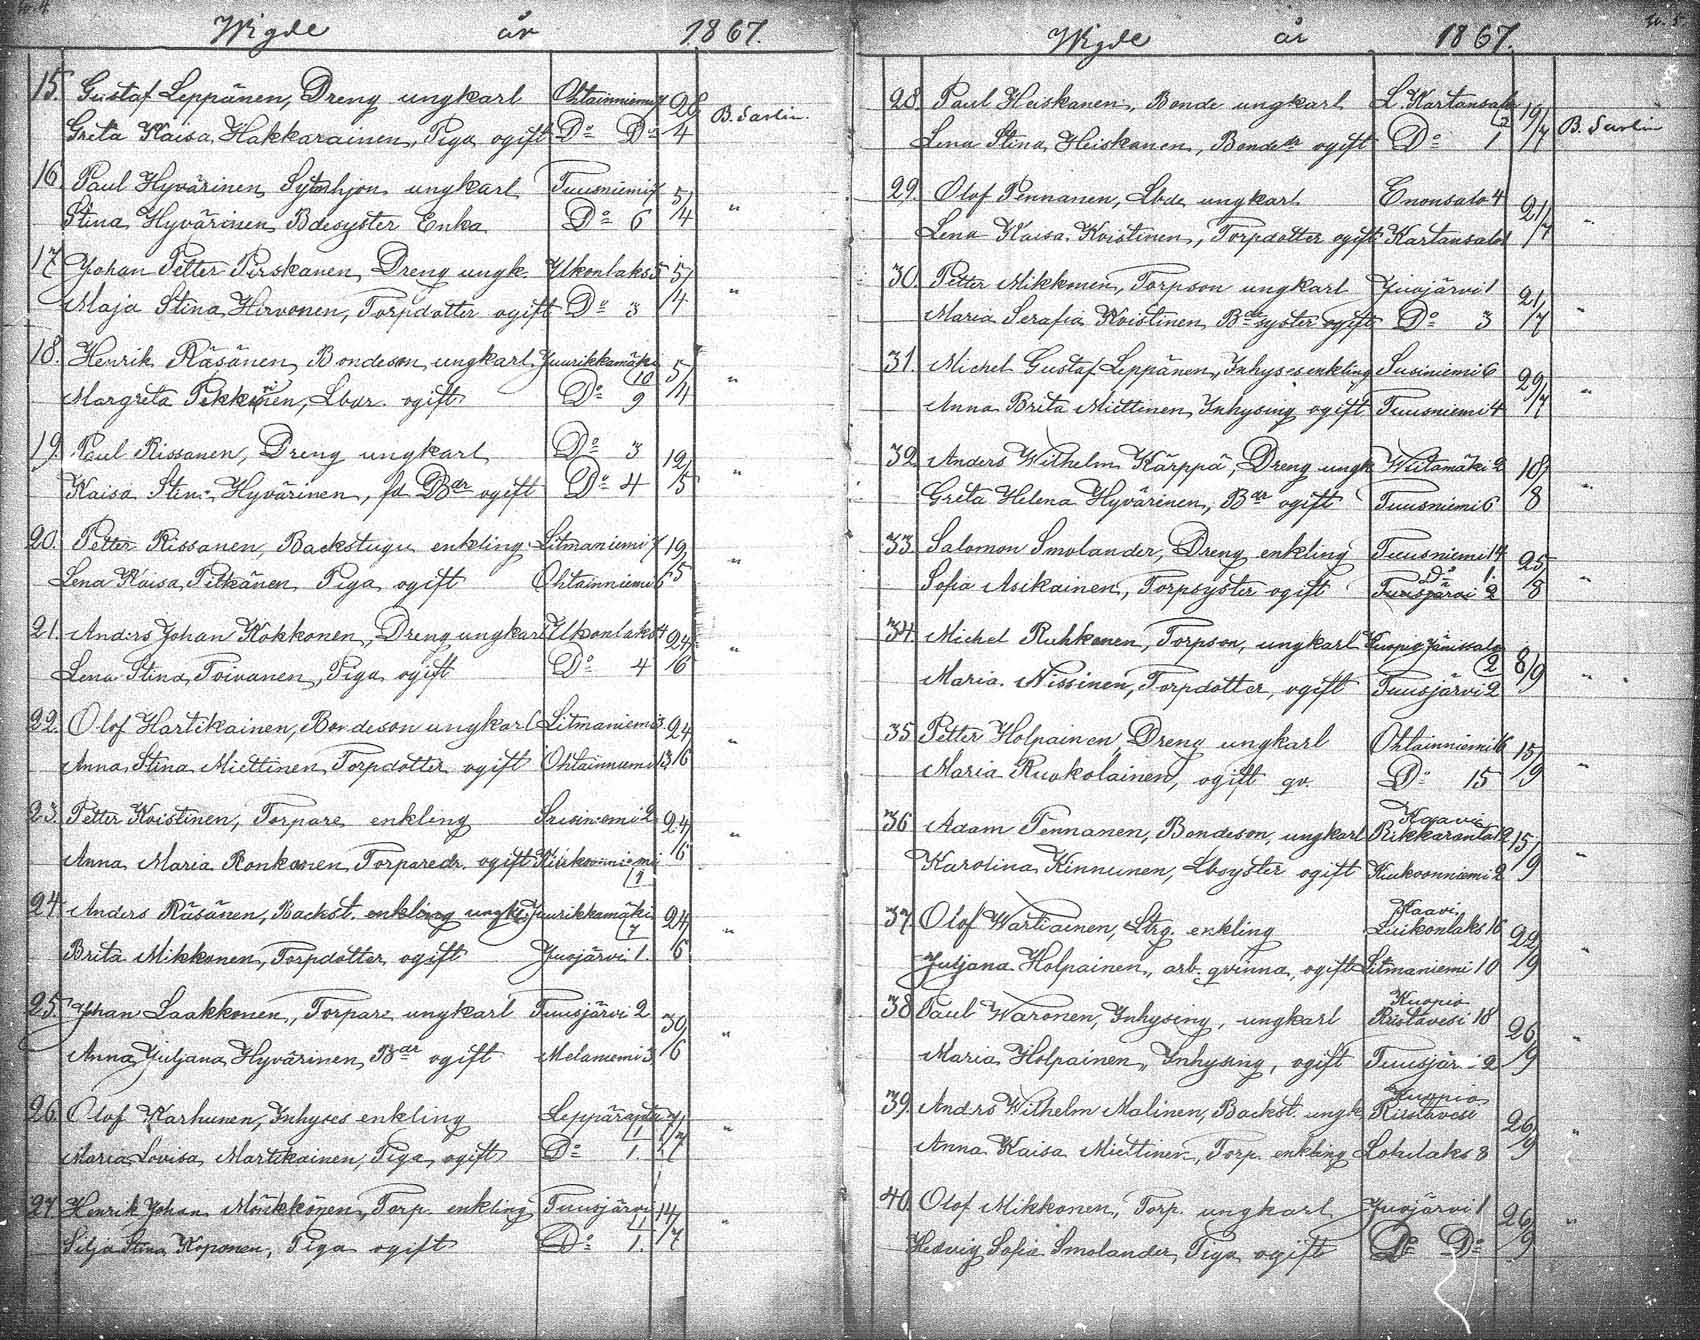 w. 4.
Wigde år 1867.
15. Gustaf Leppänen, Dreng ungkarl Ohtainniemi 7 28/4 B. Sarlin.
Greta Kaisa Hakkarainen, Piga ogift Do Do
16. Paul Hyvärinen, Sytnhjon ungkarl Tuusniemi 7 5/4 "
Stina Hyvärinen Bdesyster Enka Do 6
17 Johan Petter Pirskanen, Dreng ungk. Ukonlaks 5 5/4 "
Maja Stina Hirvonen, Torpdotter ogift Do 3
18. Henrik Räsänen, Bondeson ungkarl Juurikkamäki 10 5/4 "
Margreta Pekkinen, Lbdr. ogift Do 9
19. Paul Rissanen, Dreng ungkarl Do 3 12/5 "
Kaisa Stina Hyvärinen, fd Bdr ogift Do 4
20. Petter Rissanen, Backstugu enkling Litmaniemi 7 19/5 "
Lena Kaisa Pitkänen Piga ogift Ohtainniemi 6
21. Anders Johan Kokkonen, Dreng ungkarl Ukonlaks 4 24/6 "
Lena Stina Toivanen, Piga ogift Do 4
22. Olof Hartikainen, Bondeson ungkarl Litmaniemi 3 24/6 "
Anna Stina Miettinen Torpdotter ogift Ohtainniemi 13
23. Petter Koistinen, Torpare enkling Susiniemi 2 24/6 "
Anna Maria Ronkanen Torparedr. ogift Kiukoonniemi 1
24. Anders Räsänen, Backst. enkling ungkl Juurikkamäki 7 24/6 "
Brita Mikkonen, Torpdotter ogift Juojärvi 1.
25. Johan Laakkonen, Torpare ungkarl Tuusjärvi 2 30/6 "
Anna Juljana Hyvärinen Bdr ogift Melaniemi 3
26. Olof Karhunen, Inhyses enkling Leppäranta 1 7/7 "
Maria Lovisa Martikainen, Piga ogift Do 1.
27. Henrik Johan Mönkkönen, Torp. enkling Tuusjärvi 11 14/7 "
Silja Stina Koponen, Piga ogift Do 1.
w. 5.
Wigde år 1867.
28. Paul Heiskanen, Bonde ungkarl L. Kartansalo 2 19/7 B. Sarlin
Lena Stina Heiskanen, Bondedr ogift Do 1
29. Olof Pennanen, Lbde ungkarl Enonsalo 4 21/7 "
Lena Kaisa Koistinen, Torpdotter ogift Kartansalo 1
30. Petter Mikkonen, Torpson ungkarl Juojärvi 1 21/7 "
Maria Serafia Koistinen Bdesyster ogift Do 3
31. Michel Gustaf Leppänen, Inhyses enkling Susiniemi 6 29/7 "
Anna Brita Miettinen Inhysing ogift Tuusniemi 4
32. Anders Wilhelm Kärppä, Dreng ungk Wiitamäki 2 18/8 "
Greta Helena Hyvärinen, Bdr ogift Tuusniemi 6
33. Salomon Smolander, Dreng enkling Tuusniemi 14 25/8 "
Sofia Asikainen, Torpsyster ogift Do 1. Tuusjärvi 2
34. Michel Ruhkonen, Torpson, ungkarl Kuopio Jänissalo 2 8/9 "
Maria Nissinen, Torpdotter, ogift Tuusjärvi 2
35 Petter Holpainen Dreng ungkarl Ohtainniemi 16 15/9 "
Maria Ruokolainen, ogift qv. Do 15
36 Adam Pennanen, Bondeson, ungkarl Kaavi Rikkaranta 12 15/9 "
Karolina Kinnunen, Lbsyster ogift Kiukoonniemi 2
37. Olof Wartiainen, Ltrg. enkling Kaavi Luikonlaks 16 22/9 "
Juljana Holpainen, arb. qvinna, ogift Litmaniemi 10
38 Paul Waronen, Inhysing, ungkarl Kuopio Ristavesi 18 26/9 "
Maria Holpainen, Inhysing, ogift Tuusjärvi 2
39. Andrs Wilhelm Malinen, Backst. ungk. Kuopio Ristavesi 26/9 "
Anna Kaisa Miettinen, Torp. enkling Lohilaks 8
40. Olof Mikkonen, Torp. ungkarl Juojärvi 1 26/9 "
Hedvig Sofia Smolander, Piga ogift Do Do